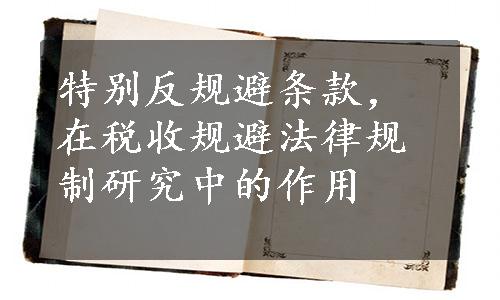 特别反规避条款，
在税收规避法律规
制研究中的作用